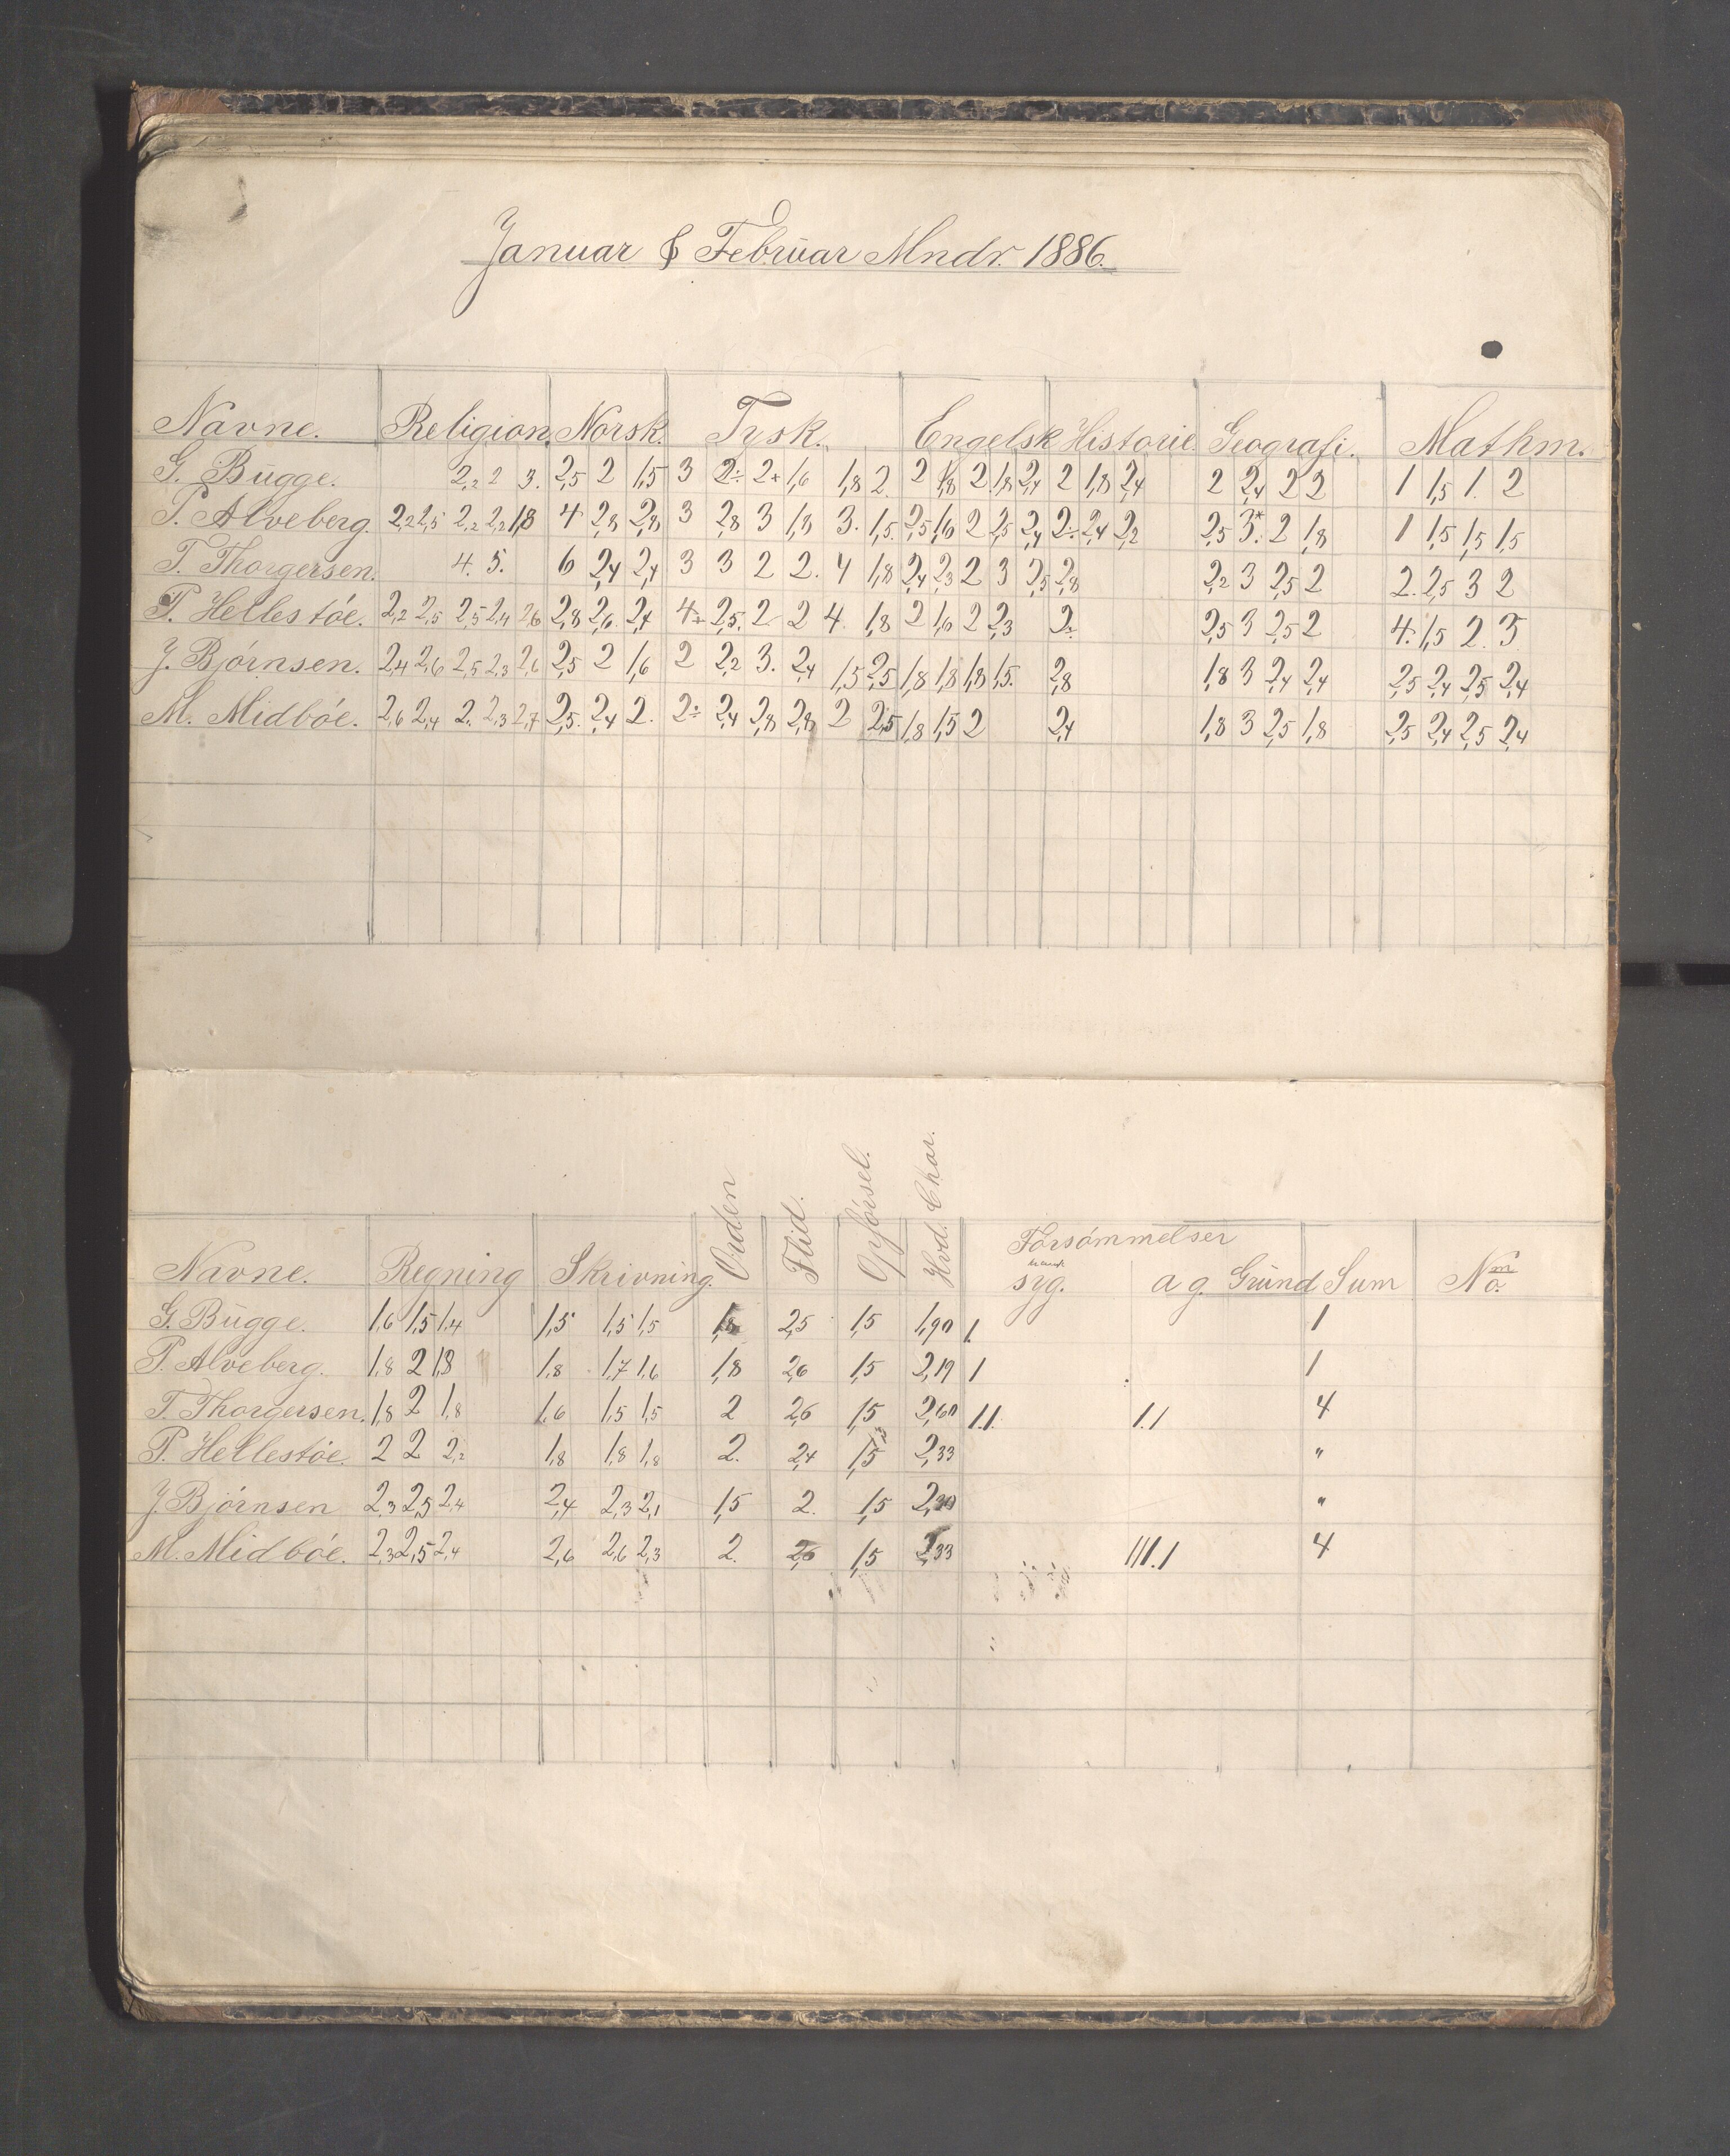 Januar & Februar Mndr. 1886.
Navne. Religion Norsk. Tysk. Engelsk Historie Geografi. Mathm.
G. Bügge. 2,2 2 3. 2,5 2 1,5 3 2÷ 2+ 1,6 1,8 2. 2 1,8 2. 1,8 2,4 2 1,8 2,4 2 2,4 2 2 1 1,5 1. 2
P. Alveberg. 2,2 2,5 2,2 2,2 1,8 4 2,8 2,8 3 2,8 3 1,8 3. 1,5. 2,5 1,6 2 2,5 2,4 2÷ 2,4 2,2 2,5 3.* 2 1,8 1 1,5 1,5 1,5
T. Thorgersen. 4. 5. 6 2,4 2,4 3 3 2 2. 4 1,8 2,4 2,3 2 3 2,5 2,8 2,2 3 2,5 2 2. 2,5 3 2
P. Hellestöe. 2,2 2,5 2,5 2,4 2,6 2,8 2,6. 2,4 4+ 2,5. 2 2 4. 1,8 2 1,6 2 2,3 2÷ 2,5 3 2,5 2 4. 1,5 2. 3
J. Bjórnsen. 2,4 2,6 2,5 2,3 2,6 2,5 2 1,6 2 2,2 3. 2,4 1,5 2,5 1,8 1,8 1,8 1,5. 2,8 1,8 3 2,4 2,4 2,5 2,4 2,5 2,4
M. Midbóe. 2,6 2,4 2. 2,3 2,7 2,5. 2,4 2. 2÷ 2,4 2,8 2,8 2 2,5 1,8 1,5 2 2,4 1,8 3 2,5 1,8 2,5 2,4 2,5 2,4
Navne. Regning Skrivning. Orden Flid. Opförsel. Hvd. Char. Forsómmelser
syg. a g. Gründ Sum No.
G. Bügge. 1,6 1,5 1,4 1,5 1,5 1,5 1,8 2,5 1,5 1,90 1. 1
P. Alveberg. 1,8 2 1,8 1,8 1,7 1,6 1,8 2,6 1,5 2,19 1 1
T. Thorgersen. 1,8 2 1,8 1,6 1,5 1,5 2 2,6 1,5 2,60 1.1. 1.1 4
P. Hellestóe. 2 2 2,2 1,8 1,8 1,8 2. 2,4 1,5 2,33 "
J. Bjórnsen 2,3 2,5 2,4 2,4 2,3 2,1 1,5 2. 1,5 2,30 "
M. Midbóe. 2,3 2,5 2,4 2,6 2,6 2,3 2. 2,6 1,5 2,33 111.1 4